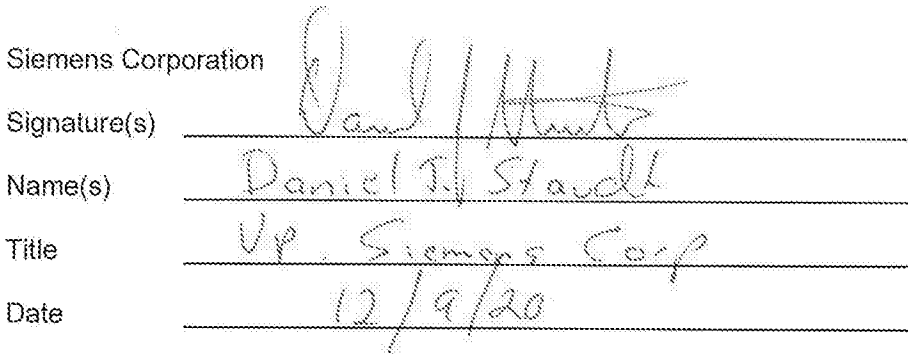 Siemens Corporation
Signature(s)
Name(s) Daniel J. Staudt
Title VP. Siemens Corp
Date 12/9/20